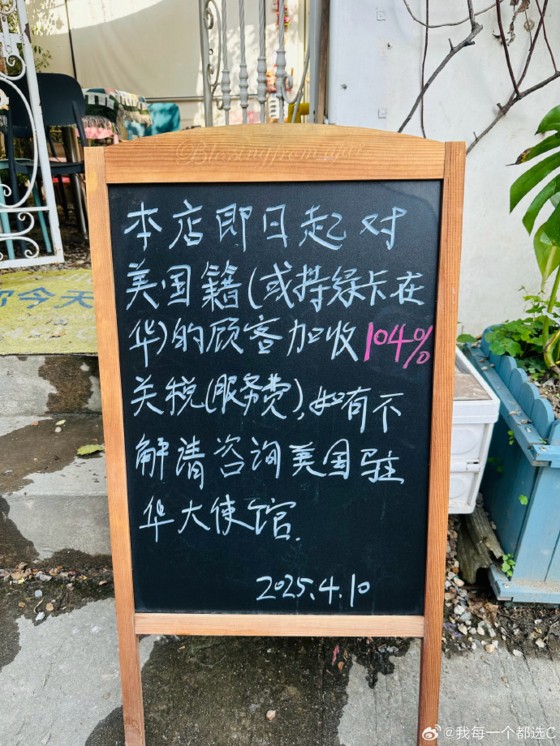 本店即日起对
美国籍(或持绿卡在
华)的顾客加收104%
关税(服务费),如有不
解请咨询美国驻
华大使馆.
2025.4.10
今天
@我每一个都选C